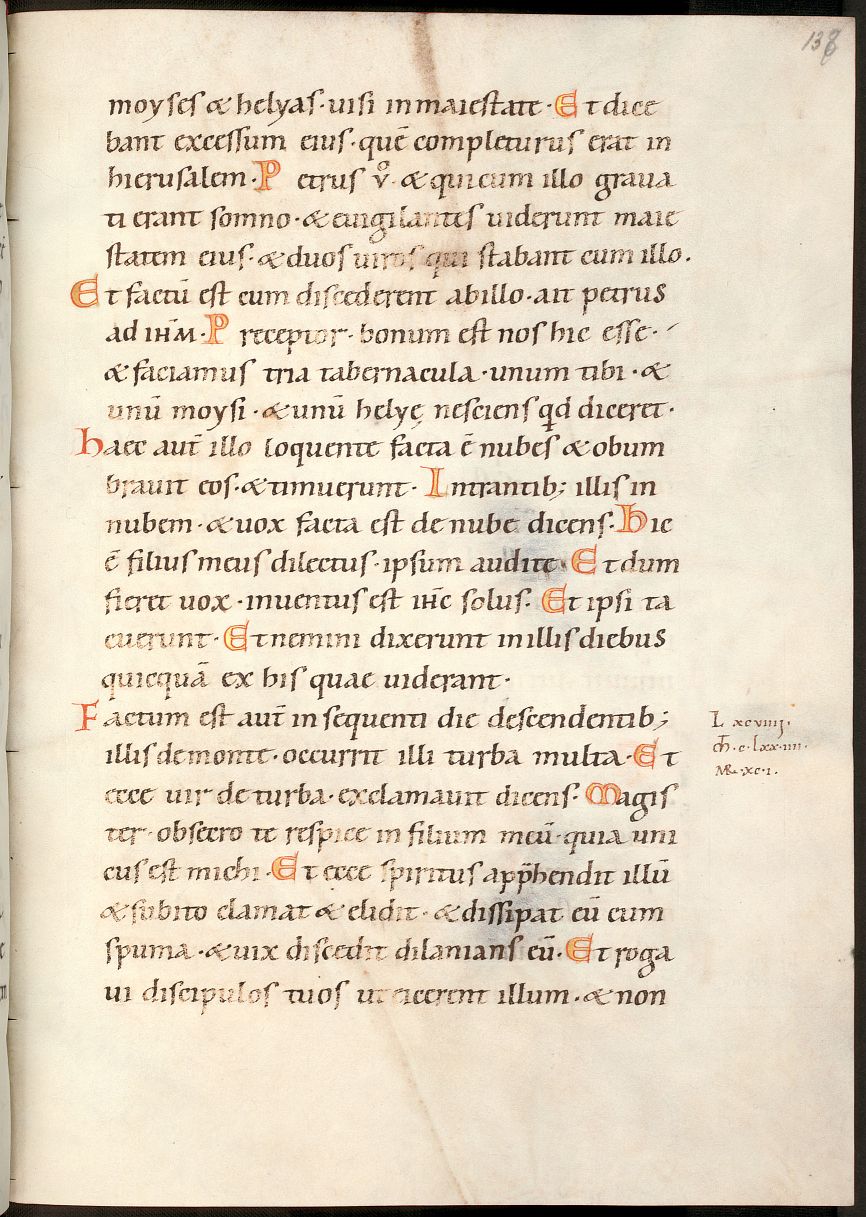 138
moyses & helyas · uisi in maiestate · Et dice
bant excessum eius · quē completurus erat in
hierusalem · Petrus v̊ · & qui cum illo graua
ti erant somno · & euigilantes uiderunt maie
statem eius · & duos uiros qui stabant cum illo .
Et factū est cum discederent ab illo · ait petrus
ad ihm̄ · Preceptor · bonum est nos hic esse ·
& faciamus tria tabernacula · unum tibi · &
unū moysi · & unū helyę nesciens qd̄ diceret ·
haec aut̄ illo loquente facta ē nubes & obum
brauit eos · & timuerunt · Intrantib; illis in
nubem · & uox facta est de nube dicens · hic
ē filius meus dilectus · ipsum audite · Et dum
fieret uox · inuentus est ihc̄ solus · Et ipsi ta
cuerunt · Et nemini dixerunt in illis diebus
quicquā ex his quae uiderant ·
Factum est aut̄ in sequenti die descendentib;
illis de monte · occurrit illi turba multa · Et
ecce uir de turba · exclamauit dicens · Magis
ter · obsecro te respice in filium meū · quia uni
cus est michi · Et ecce spiritus app̄hendit illū
& subito clamat & elidit · & dissipat eū cum
spuma · & uix discedit dilanians eū · Et roga
ui discipulos tuos ut eicerent illum · & non
L xcviiij ·
m̄t · c · lxx · iiii ·
MR · xc · i ·